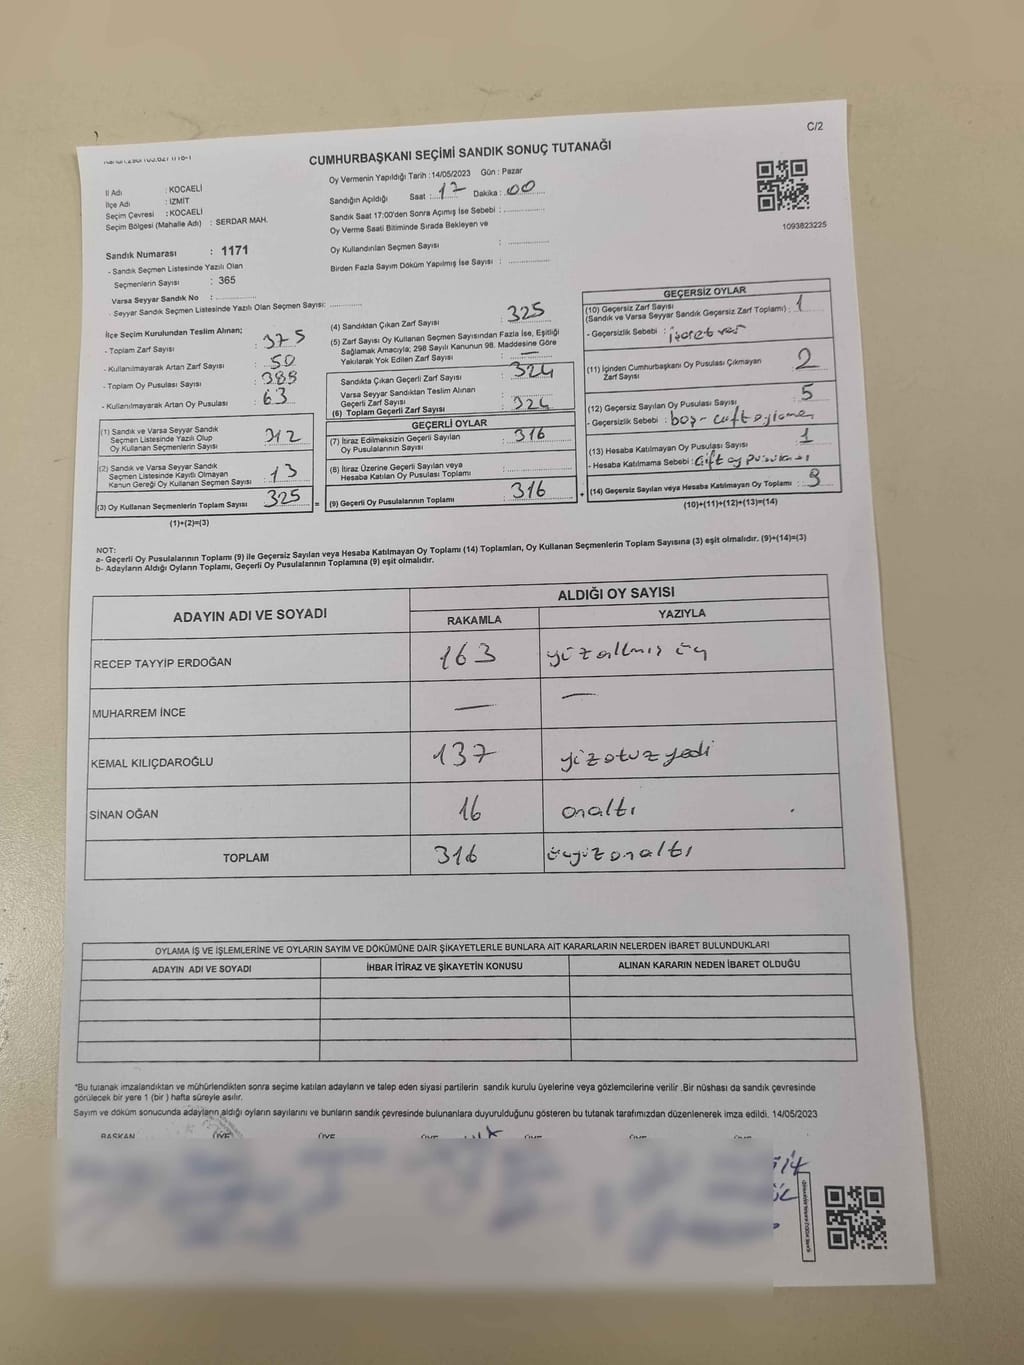 C/2
CUMHURBAŞKANI SEÇİMİ SANDIK SONUÇ TUTANAĞI
İl Adı : KOCAELİ
İlçe Adı : İZMİT
Seçim Çevresi : KOCAELİ
Seçim Bölgesi (Mahalle Adı) : SERDAR MAH.
Sandık Numarası : 1171
- Sandık Seçmen Listesinde Yazılı Olan
Seçmenlerin Sayısı : 365
Varsa Seyyar Sandık No : ..............
- Seyyar Sandık Seçmen Listesinde Yazılı Olan Seçmen Sayısı: ...........
Oy Vermenin Yapıldığı Tarih : 14/05/2023 Gün : Pazar
Sandığın Açıldığı Saat : 17 Dakika : 00
Sandık Saat 17:00'den Sonra Açımış İse Sebebi : ..............
Oy Verme Saati Bitiminde Sırada Bekleyen ve
Oy Kullandırılan Seçmen Sayısı : ..............
Birden Fazla Sayım Döküm Yapılmış İse Sayısı : ..............
1093823225
İlçe Seçim Kurulundan Teslim Alınan;
- Toplam Zarf Sayısı : 375
- Kullanılmayarak Artan Zarf Sayısı : 50
- Toplam Oy Pusulası Sayısı : 388
- Kullanılmayarak Artan Oy Pusulası : 63
(1) Sandık ve Varsa Seyyar Sandık
Seçmen Listesinde Yazılı Olup
Oy Kullanan Seçmenlerin Sayısı : 312
(2) Sandık ve Varsa Seyyar Sandık
Seçmen Listesinde Kayıtlı Olmayan
Kanun Gereği Oy Kullanan Seçmen Sayısı : 13
(3) Oy Kullanan Seçmenlerin Toplam Sayısı : 325
(1)+(2)=(3)
(4) Sandıktan Çıkan Zarf Sayısı : 325
(5) Zarf Sayısı Oy Kullanan Seçmen Sayısından Fazla İse, Eşitliği
Sağlamak Amacıyla; 298 Sayılı Kanunun 98. Maddesine Göre
Yakılarak Yok Edilen Zarf Sayısı : —
Sandıkta Çıkan Geçerli Zarf Sayısı : 324
Varsa Seyyar Sandıktan Teslim Alınan
Geçerli Zarf Sayısı :
(6) Toplam Geçerli Zarf Sayısı : 324
GEÇERLİ OYLAR
(7) İtiraz Edilmeksizin Geçerli Sayılan
Oy Pusulalarının Sayısı : 316
(8) İtiraz Üzerine Geçerli Sayılan veya
Hesaba Katılan Oy Pusulası Toplamı : ..............
= (9) Geçerli Oy Pusulalarının Toplamı : 316
GEÇERSİZ OYLAR
(10) Geçersiz Zarf Sayısı
(Sandık ve Varsa Seyyar Sandık Geçersiz Zarf Toplamı) : 1
- Geçersizlik Sebebi : işaret var
(11) İçinden Cumhurbaşkanı Oy Pusulası Çıkmayan
Zarf Sayısı : 2
(12) Geçersiz Sayılan Oy Pusulası Sayısı : 5
- Geçersizlik Sebebi : boş-
(13) Hesaba Katılmayan Oy Pusulası Sayısı : 1
- Hesaba Katılmama Sebebi : Çift oy pusulası
+ (14) Geçersiz Sayılan veya Hesaba Katılmayan Oy Toplamı :
(10)+(11)+(12)+(13)=(14)
NOT:
a- Geçerli Oy Pusulalarının Toplamı (9) ile Geçersiz Sayılan veya Hesaba Katılmayan Oy Toplamı (14) Toplamları, Oy Kullanan Seçmenlerin Toplam Sayısına (3) eşit olmalıdır. (9)+(14)=(3)
b- Adayların Aldığı Oyların Toplamı, Geçerli Oy Pusulalarının Toplamına (9) eşit olmalıdır.
ADAYIN ADI VE SOYADI
ALDIĞI OY SAYISI
RAKAMLA YAZIYLA
RECEP TAYYİP ERDOĞAN 163 yüzaltmış üç
MUHARREM İNCE — —
KEMAL KILIÇDAROĞLU 137 yüzotuzyedi
SİNAN OĞAN 16 onaltı
TOPLAM 316 üçyüzonaltı
OYLAMA İŞ VE İŞLEMLERİNE VE OYLARIN SAYIM VE DÖKÜMÜNE DAİR ŞİKAYETLERLE BUNLARA AİT KARARLARIN NELERDEN İBARET BULUNDUKLARI
ADAYIN ADI VE SOYADI İHBAR İTİRAZ VE ŞİKAYETİN KONUSU ALINAN KARARIN NEDEN İBARET OLDUĞU
*Bu tutanak imzalandıktan ve mühürlendikten sonra seçime katılan adayların ve talep eden siyasi partilerin sandık kurulu üyelerine veya gözlemcilerine verilir .Bir nüshası da sandık çevresinde
görülecek bir yere 1 (bir ) hafta süreyle asılır.
Sayım ve döküm sonucunda adayların aldığı oyların sayılarını ve bunların sandık çevresinde bulunanlara duyurulduğunu gösteren bu tutanak tarafımızdan düzenlenerek imza edildi. 14/05/2023
BAŞKAN ÜYE ÜYE ÜYE ÜYE ÜYE ÜYE